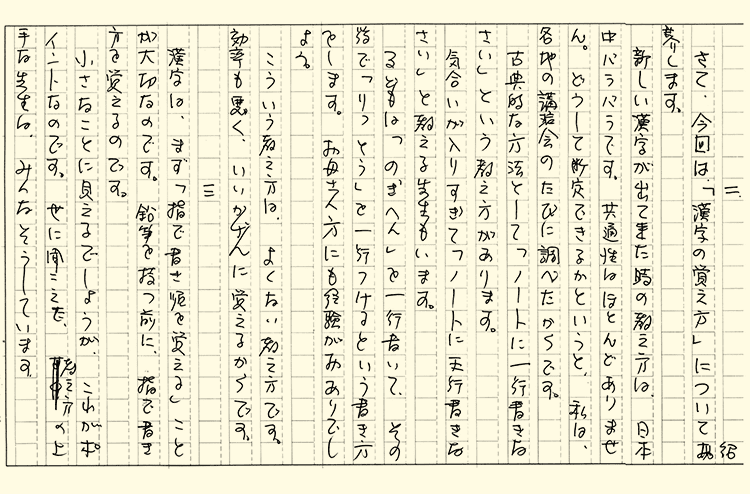 二
さて、今回は、「漢字の覚え方」について紹
介します。
新しい漢字が出てきた時の教え方は、日本
中バラバラです。共通性はほとんどありませ
ん。どうして断定できるかというと、私は、
各地の講演会のたびに調べたからです。
古典的な方法として「ノートに一行書きな
さい」という教え方があります。
気合いが入りすぎて「ノートに五行書きな
さい」と教える先生もいます。
るともは「のぎへん」を一行書いて、その
後で「りっとう」を一行つけるという書き方
をします。お母さん方にも経験がおありでし
ょう。
こういう教え方は、よくない教え方です。
効率も悪く、いいかげんに覚えるからです。
三
漢字は、まず「指で書き順を覚える」こと
が大切なのです。鉛筆を持つ前に、指で書き
方を覚えるのです。
小さなことに見えるでしょうが、これがポ
イントなのです。世に聞こえた、教え方の上
手な先生は、みんなそうしています。